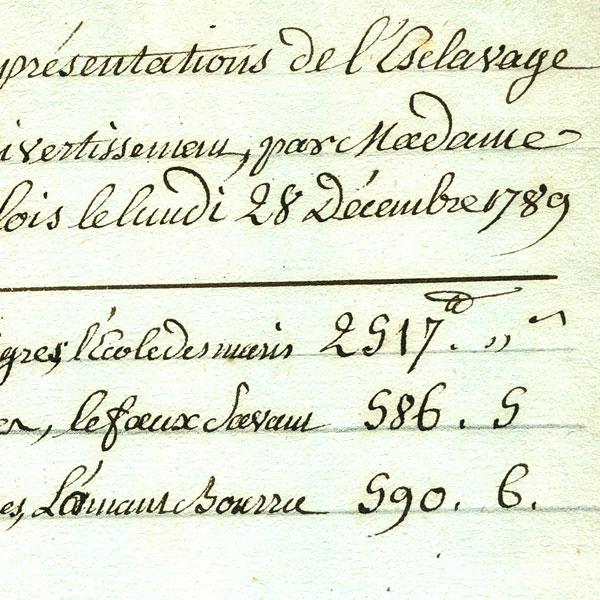 présentations de l'Esclavage
ivertissement, par Madame
lois le lundi 28 Décembre 1789
gres, l'École des maris 2517.tt „
le faux Savant 586. 5
es, L'amant Bourru 590. 6.